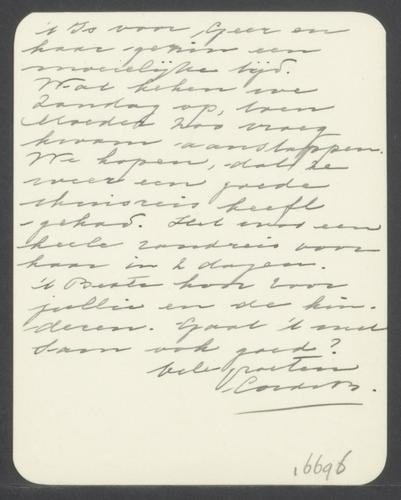 't Is voor Geer en
haar gezin een
moeielijke tijd.
Wat keken we
Zondag op, toen
Moeder zoo vroeg
kwam aanstappen.
We hopen, dat ze
weer een goede
thuisreis heeft
gehad. Het was een
heele rondreis voor
haar in 2 dagen.
't Beste hoor voor
jullie en de kin-
deren. Gaat 't met
Sam ook goed?
Vele groeten
16696